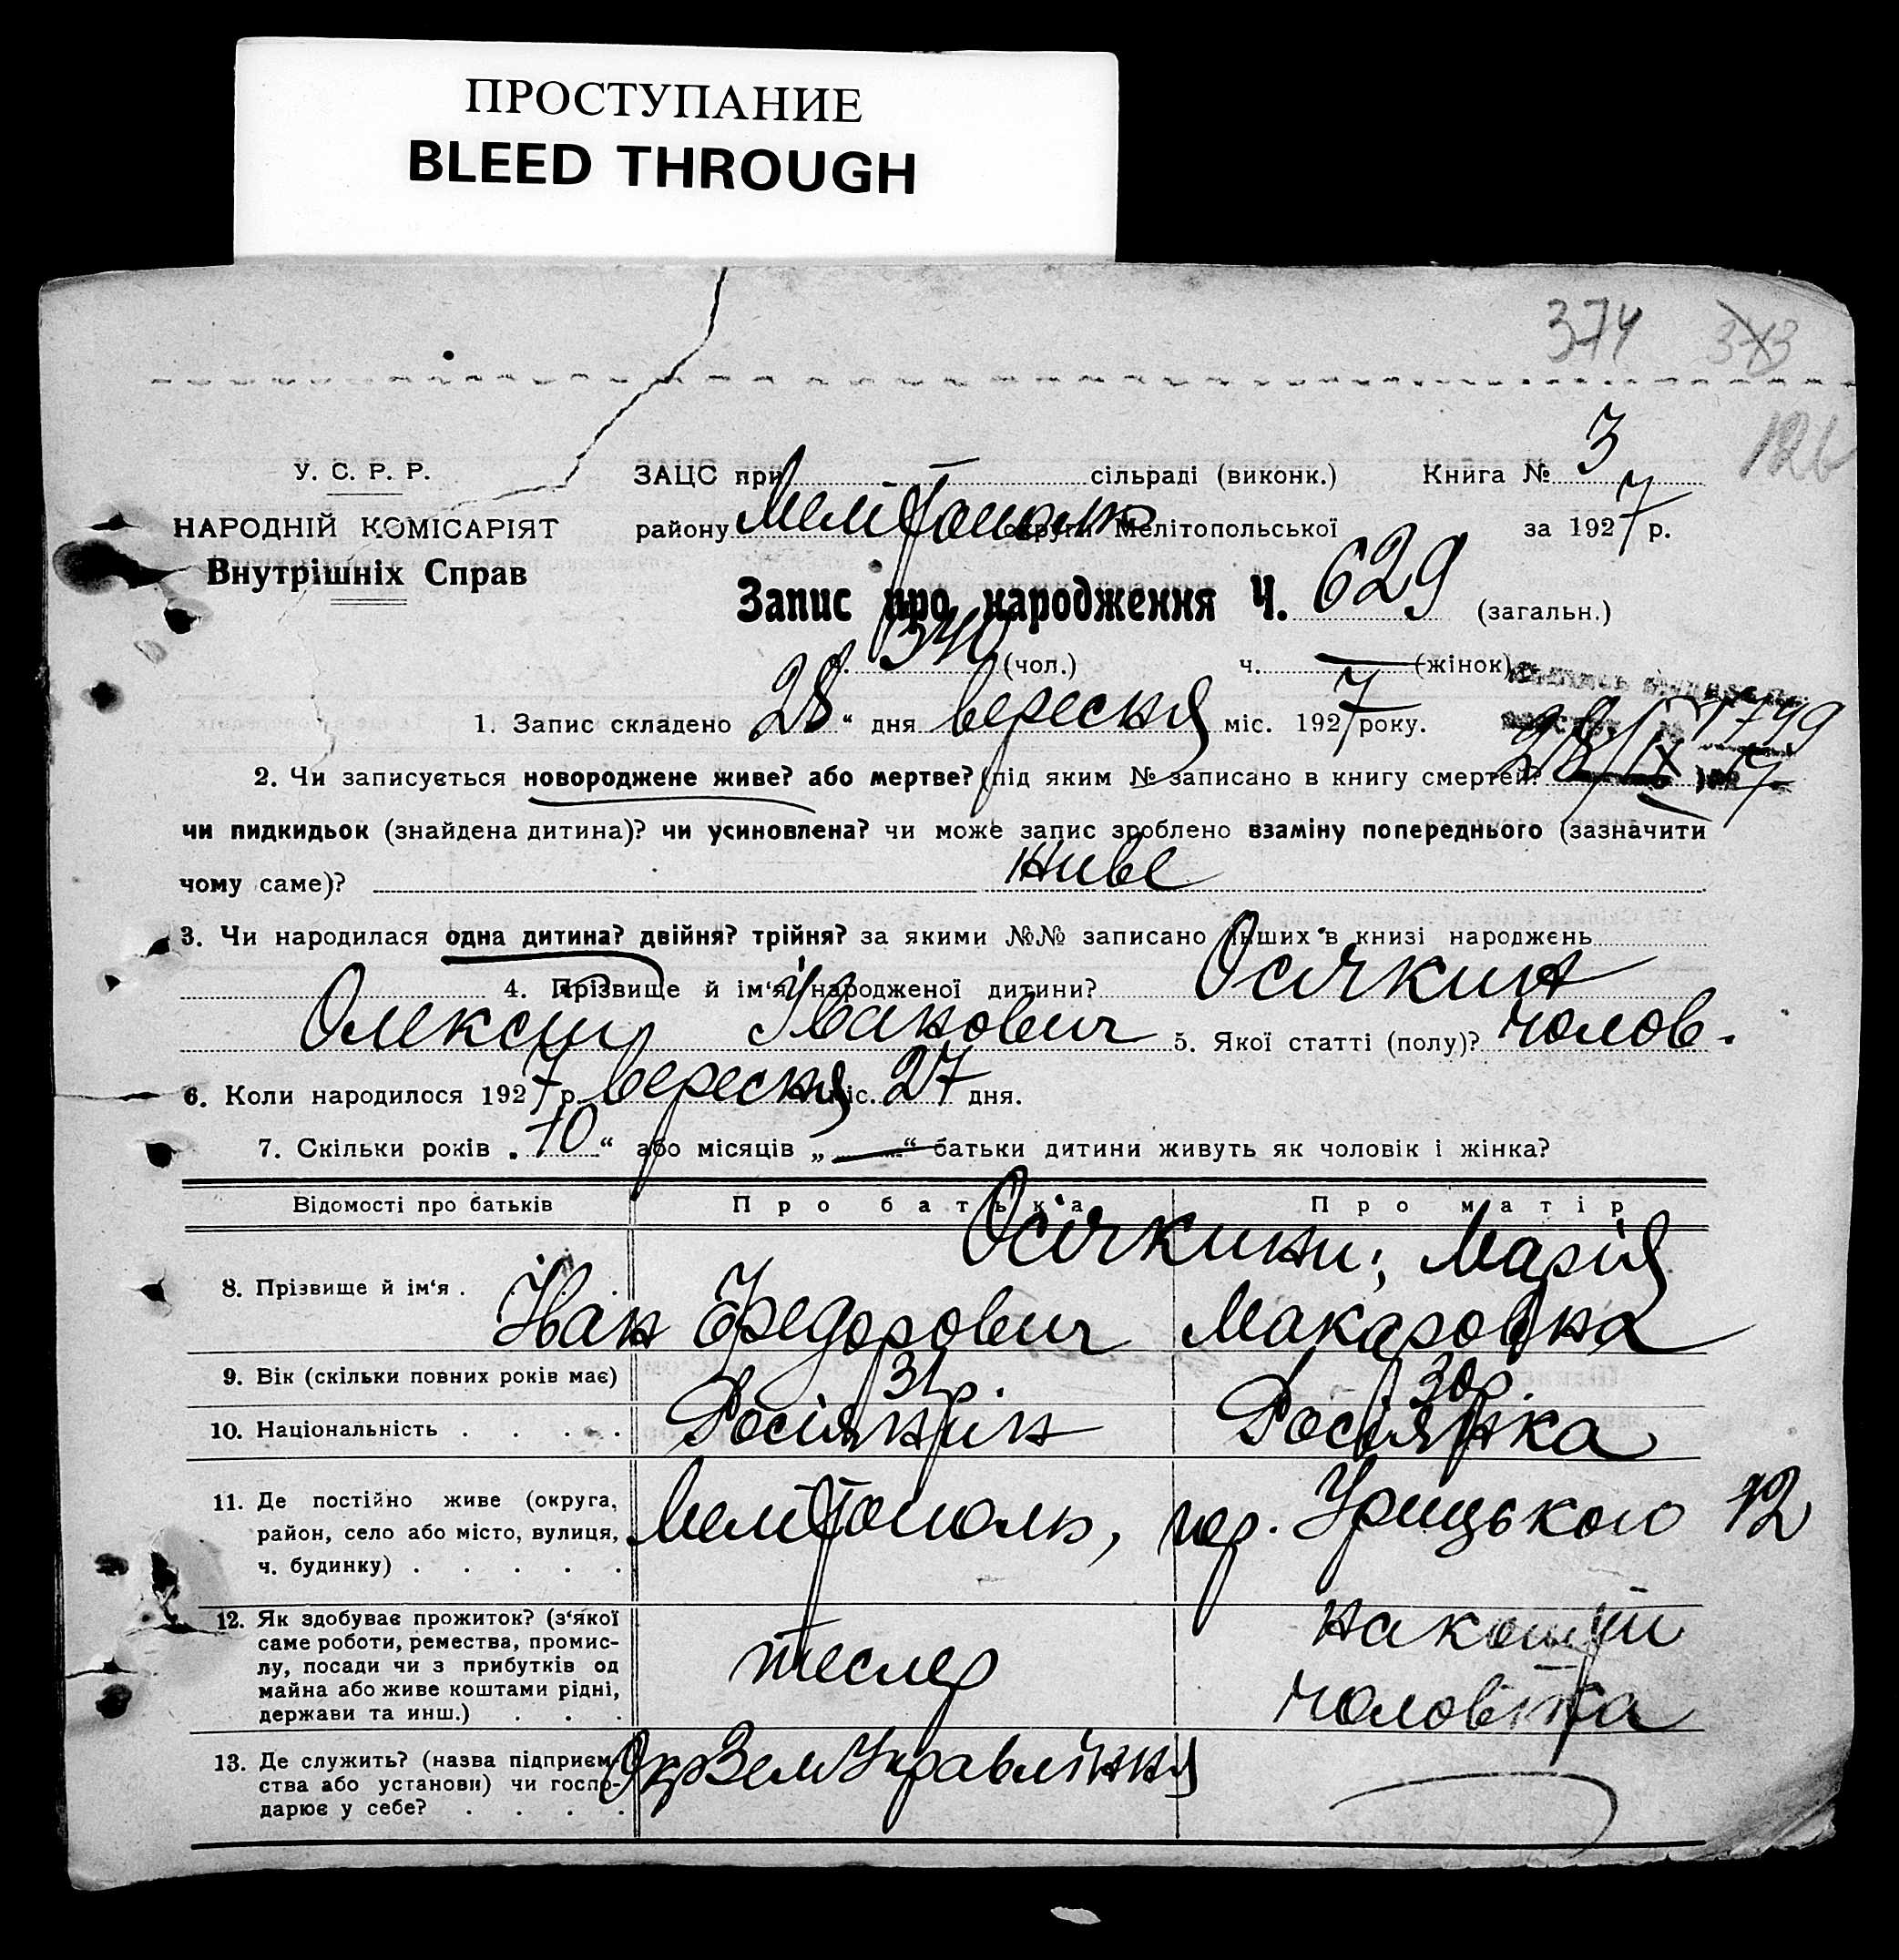 ПРОСТУПАНИЕ
BLEED THROUGH
374 373
126
У. С. Р. Р.
НАРОДНІЙ КОМІСАРІЯТ
Внутрішніх Справ
ЗАЦС при сільраді (виконк.) Книга № 3
району Мелітополь округи Мелітопольської за 1927 р.
Запис про народження Ч. 629 (загальн.)
ч. 340 (чол.) ч. — (жінок)
1. Запис складено 28 “ дня вересня міс. 1927 року.
28/IX 1749
2. Чи записується новороджене живе? або мертве? (під яким № записано в книгу смертей?
чи пидкидьок (знайдена дитина)? чи усиновлена? чи може запис зроблено взаміну попереднього (зазначити
чому саме)? живе
3. Чи народилася одна дитина? двійня? трійня? за якими №№ записано інших в книзі народжень
4. Прізвище й ім‘я народженої дитини? Осічкин
Олексій Іванович 5. Якої статті (полу)? чолов.
6. Коли народилося 1927 р. вересня міс. 27 дня.
7. Скільки років „ 10 “ або місяців „ — “ батьки дитини живуть як чоловік і жінка?
Відомості про батьків Про батька Про матір
8. Прізвище й ім‘я . . . . . Осічкини; Марія
Іван Федорович Макаровна
9. Вік (скільки повних років має) 31 р. 30 р.
10. Національність . . . . . Росіянин Росіянка
11. Де постійно живе (округа,
район, село або місто, вулиця,
ч. будинку) . . . . .
Мелітополь, пер. Урицького 12
12. Як здобуває прожиток? (з‘якої
саме роботи, ремества, промис-
лу, посади чи з прибутків од
майна або живе коштами рідні,
держави та инш.) . . .
тесляр
на кошти
чоловіка
13. Де служить? (назва підприєм-
ства або установи) чи госпо-
дарює у себе? . . . .
ОкрЗемУправління